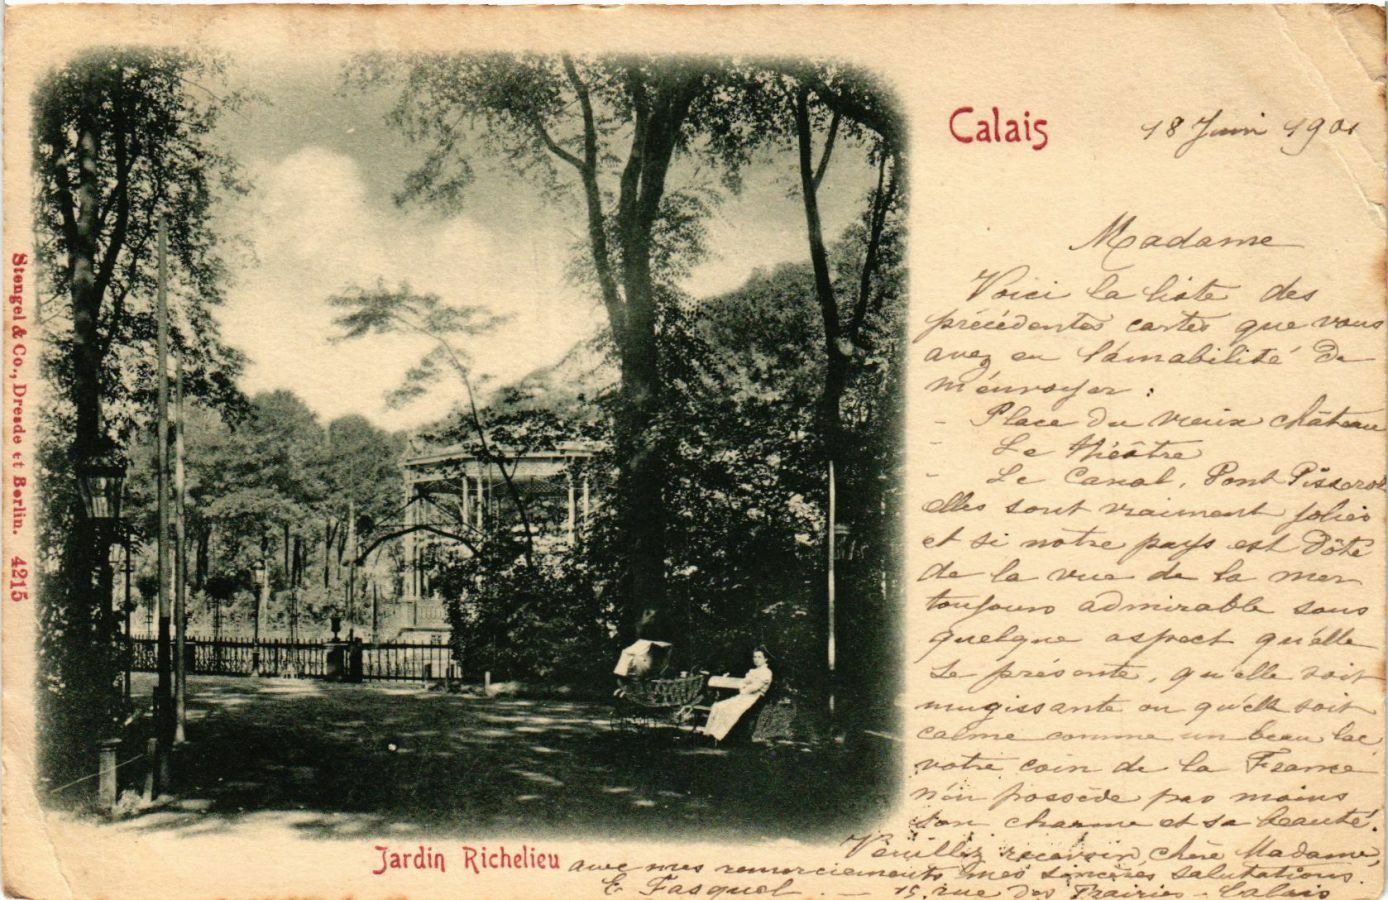 Calais
18 Juin 1901
Madame
Voici la liste des
précédentes cartes que vous
avez eu l'amabilité de
m'envoyer :
- Place du vieux château
- Le théâtre
- Le Canal, Pont
elles sont vraiment jolies
et si notre pays est dôté
de la vue de la mer
toujours admirable sous
quelque aspect qu'elle
se présente, qu'elle soit
mugissante ou qu'elle soit
calme comme un beau lac
votre coin de la France
n'en possède pas moins
son charme et sa beauté.
Veuillez recevoir, chère Madame,
avec mes remerciements mes sincères salutations.
E Fasquel. — 15, rue des Prairies - Calais
Jardin Richelieu
Stengel & Co., Dresde et Berlin. 4215